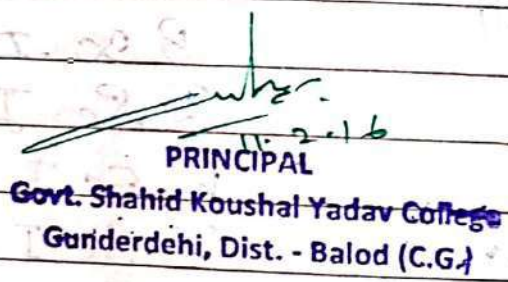 11.2.16
PRINCIPAL
Govt. Shahid Koushal Yadav College
Gunderdehi, Dist. - Balod (C.G.)